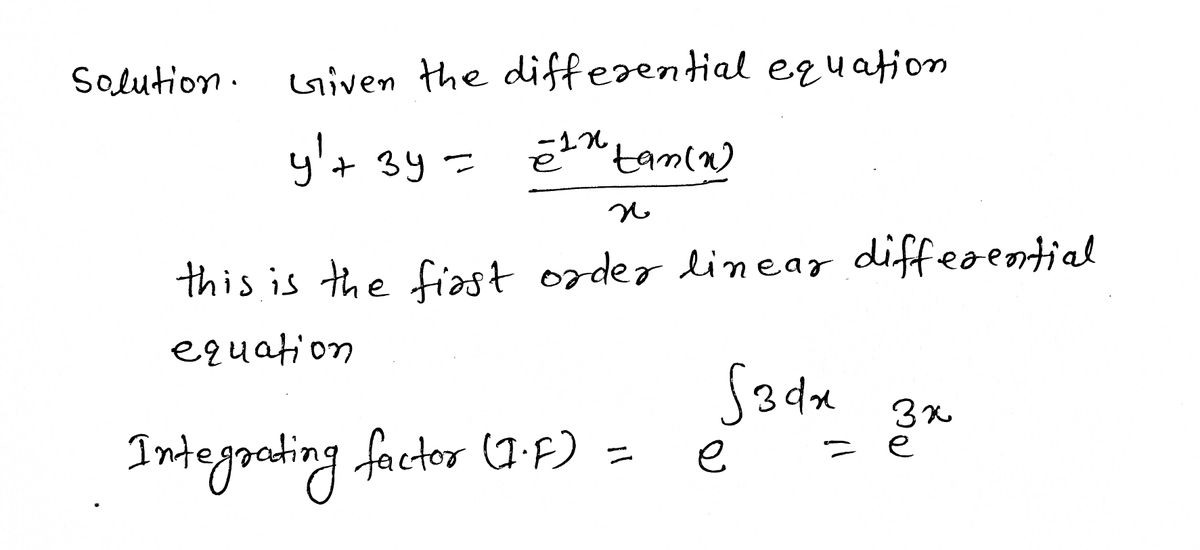 Solution. Given the differential equation
y' + 3y = e^{-1x} tan(x) / x
this is the first order linear differential
equation
Integrating factor (I.F) = e^{∫3dx} = e^{3x}